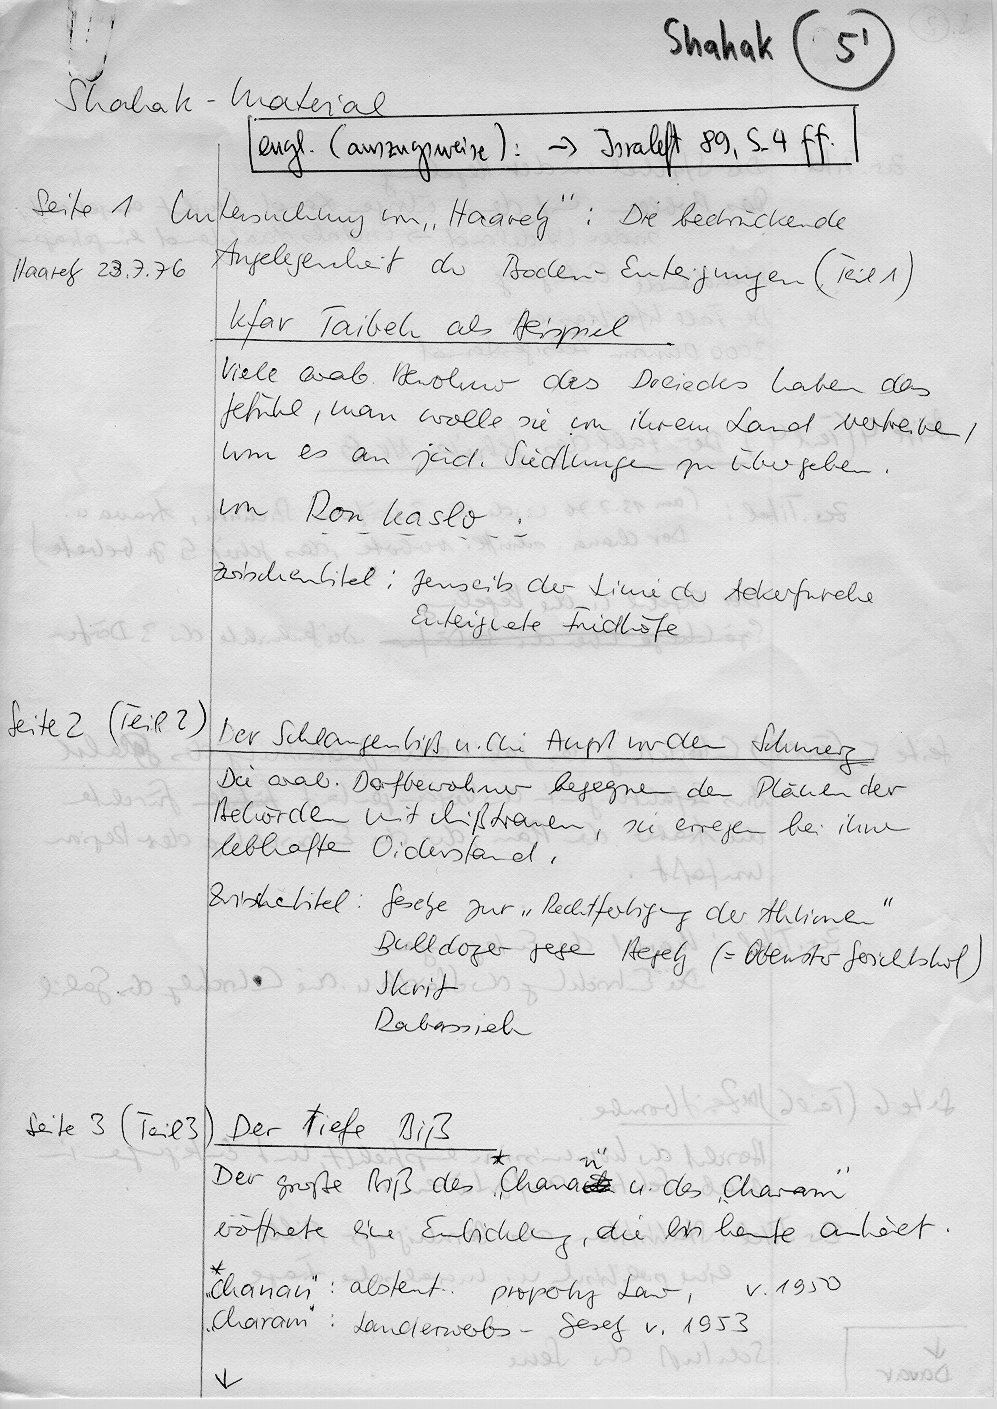 Shahak 5'
Shahak-Material
engl. (auszugsweise): → Israleft 89, S. 4 ff.
Seite 1 Untersuchung von „Haaretz“: Die bedrückende
Haaretz 23.7.76 Angelegenheit der Boden-Enteignungen (Teil 1)
Kfar Taibeh als Beispiel
Viele arab. Bewohner des Dreiecks haben das
Gefühl, man wolle sie von ihrem Land vertreiben,
um es an jüd. Siedlungen zu übergeben.
von Ron Kaslo.
Zwischentitel: Jenseits der Linie der Ackerfurche
Enteignete Friedhöfe
Seite 2 (Teil 2) Der Schlangenbiß u. die Angst vor dem Schmerz
Die arab. Dorfbewohner begegnen den Plänen der
Behörden mit Mißtrauen, sie erregen bei ihnen
lebhaften Widerstand.
Zwischentitel: Gesetze zur „Rechtfertigung der Aktionen“
Bulldozer gegen Bagatz (= Oberster Gerichtshof)
Skrif
Seite 3 (Teil 3) Der tiefe Biß
Der große Biß des *„Chanan“ u. des „Charam“
eröffnete eine Entwicklung, die bis heute andauert.
*„Chanan“: absent. property Law, v. 1950
„Charam“: Landerwerbs-Gesetz v. 1953
↓